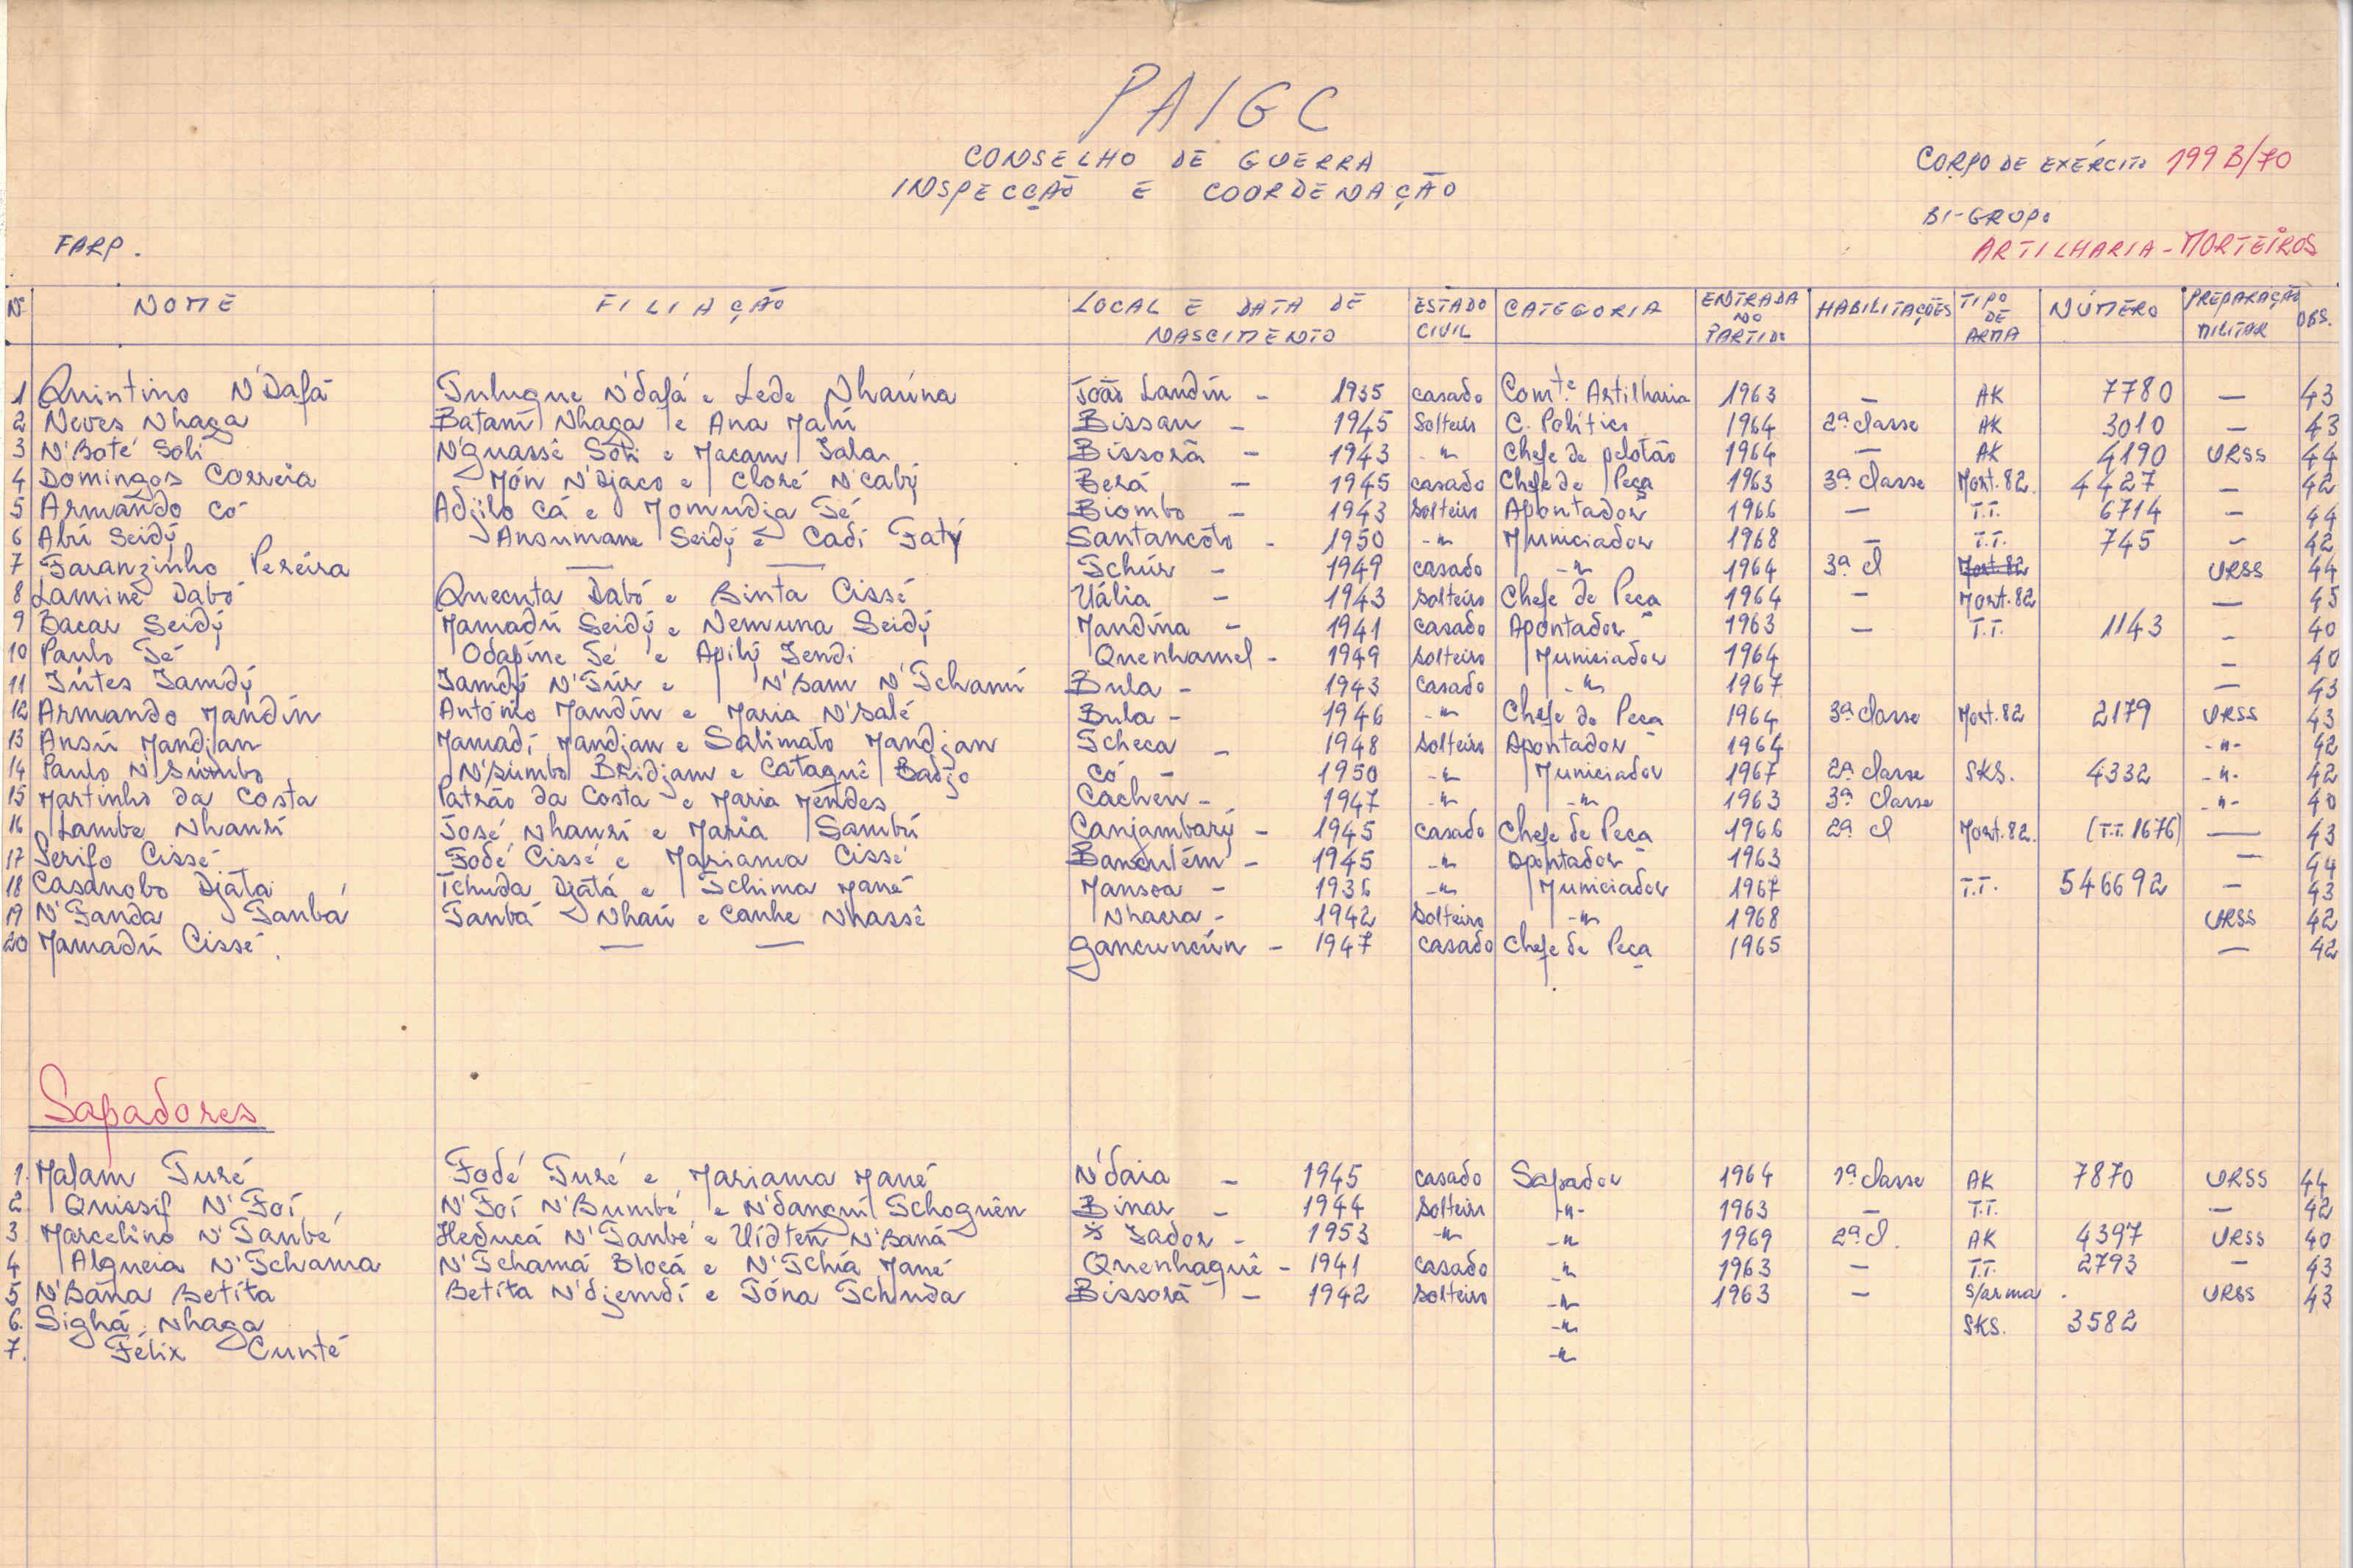 PAIGC
CONSELHO DE GUERRA
INSPECÇÃO E COORDENAÇÃO
CORPO DE EXÉRCITO 199 B/70
BI-GRUPO
FARP.
ARTILHARIA - MORTEIROS
Nº NOME FILIAÇÃO LOCAL E DATA DE NASCIMENTO ESTADO CIVIL CATEGORIA ENTRADA NO PARTIDO HABILITAÇÕES TIPO DE ARMA NÚMERO PREPARAÇÃO MILITAR OBS.
1 Quintino N'Dafá Tulugue N'dafá e Lede Nhaúna João Landin - 1935 casado Comte. Artilharia 1963 — AK 7780 — 43
2 Neves Nhaga Batam Nhaga e Ana Mahi Bissau - 1945 Solteiro C. Político 1964 2ª classe AK 3010 — 43
3 N'Baté Sohi N'guassê Sohi e Macam Sala Bissorã - 1943 -"- Chefe de pelotão 1964 — AK 4190 URSS 44
4 Domingos Correia Món N'Djaco e Cloré N'caby Berá - 1945 casado Chefe de Peça 1963 3ª classe Mort. 82. 4427 — 42
5 Armando Có Adjilo Cá e Momudja Té Biombo - 1943 Solteiro Apontador 1966 — T.T. 6714 — 44
6 Abú Seidý Ansumane Seidý e Cadí Fatý Santancoto - 1950 -"- Municiador 1968 — T.T. 745 — 42
7 Faranzinho Pereira — — Tchúr - 1949 casado -"- 1964 3ª cl Mort. 82 URSS 44
8 Lamine Dabó Quecuta Dabó e Binta Cissé Uália - 1943 Solteiro Chefe de Peça 1964 — Mort. 82 — 45
9 Bacar Seidý Mamadú Seidý e Nemuna Seidý Mandina - 1941 casado Apontador 1963 — T.T. 1143 — 40
10 Paulo Té Odafine Té e Apilý Sendi Quenhamel - 1949 Solteiro Municiador 1964 — 40
11 Intes Iamdý Iamdý N'Túr e N'Bam N'Tchamú Bula - 1943 casado -"- 1967 — 43
12 Armando Mandin António Mandin e Maria N'Salé Bula - 1946 -"- Chefe de Peça 1964 3ª classe Mort. 82 2179 URSS 43
13 Ansú Mandjan Mamadí Mandjan e Salimato Mandjan Tcheca - 1948 Solteiro Apontador 1964 -"- 42
14 Paulo N'Sumbo N'Sumbo Bridjam e Cataquê Badjo Có - 1950 -"- Municiador 1967 2ª classe SKS. 4332 -"- 42
15 Martinho da Costa Patrão da Costa e Maria Mendes Cacheu - 1947 -"- -"- 1963 3ª classe -"- 40
16 Lambe Nhansí José Nhansí e Maria Sambú Canjambarý - 1945 casado Chefe de Peça 1966 2ª cl Mort. 82. (T.T. 1676) — 43
17 Serifo Cissé Fodé Cissé e Mariama Cissé - 1945 -"- Apontador 1963 — 44
18 Casanobo Djatá Tchuda Djatá e Tchima Mané Mansoa - 1936 -"- Municiador 1967 T.T. 546692 — 43
19 N'Fanda Tanbá Tanbá Nhaú e Canhe Nhassê Nhacra - 1942 Solteiro -"- 1968 URSS 42
20 Mamadú Cissé — — Gancuncún - 1947 casado Chefe de Peça 1965 — 42
Sapadores
1. Malam Turé Fodé Turé e Mariama Mané N'daia - 1945 casado Sapador 1964 1ª classe AK 7870 URSS 44
2. Quissif N'Foí N'Foí N'Bumbé e N'danguí Tchoguên Binar - 1944 Solteiro -"- 1963 — T.T. — 42
3. Marcelino N'Tanbé Heducá N'Tanbé e Uídten N'Baná Jador - 1953 -"- -"- 1969 2ª cl. AK 4397 URSS 40
4 Algueia N'Tchama N'Tchamá Blocá e N'Tchiá Mané Quenhaquê - 1941 casado -"- 1963 — T.T. 2793 — 43
5 N'Bana Betita Betita N'djemdí e Tóna Tchuda Bissorã - 1942 Solteiro -"- 1963 — S/arma. URSS 43
6. Sighá Nhaga -"- SKS. 3582
7. Félix Cunté -"-